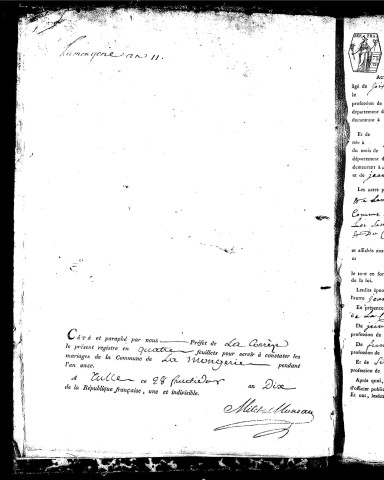 Lamongerie an 11.
Coté et paraphé par nous Préfet de La Corrèze
le présent registre en quatre feuillets pour servir à constater les
mariages de la Commune de La Mongerie pendant
l'an onze.
A Tulle ce 28 fructidor an Dix
de la République française, une et indivisible.
Milet Mureau
REP. FRA.
AC
âgé de
le
profession de
département d
demeurant à
Et de
née à
du mois de
département d
demeurant à
et de jean
Les actes p
Comme
et affichés aux
le tout en for
de la loi.
Lesdits épou
l'autre jean
En présence
De
profession de
De
profession de
Et de
profession de
Après quoi,
d'officier public
Et ont, lesd